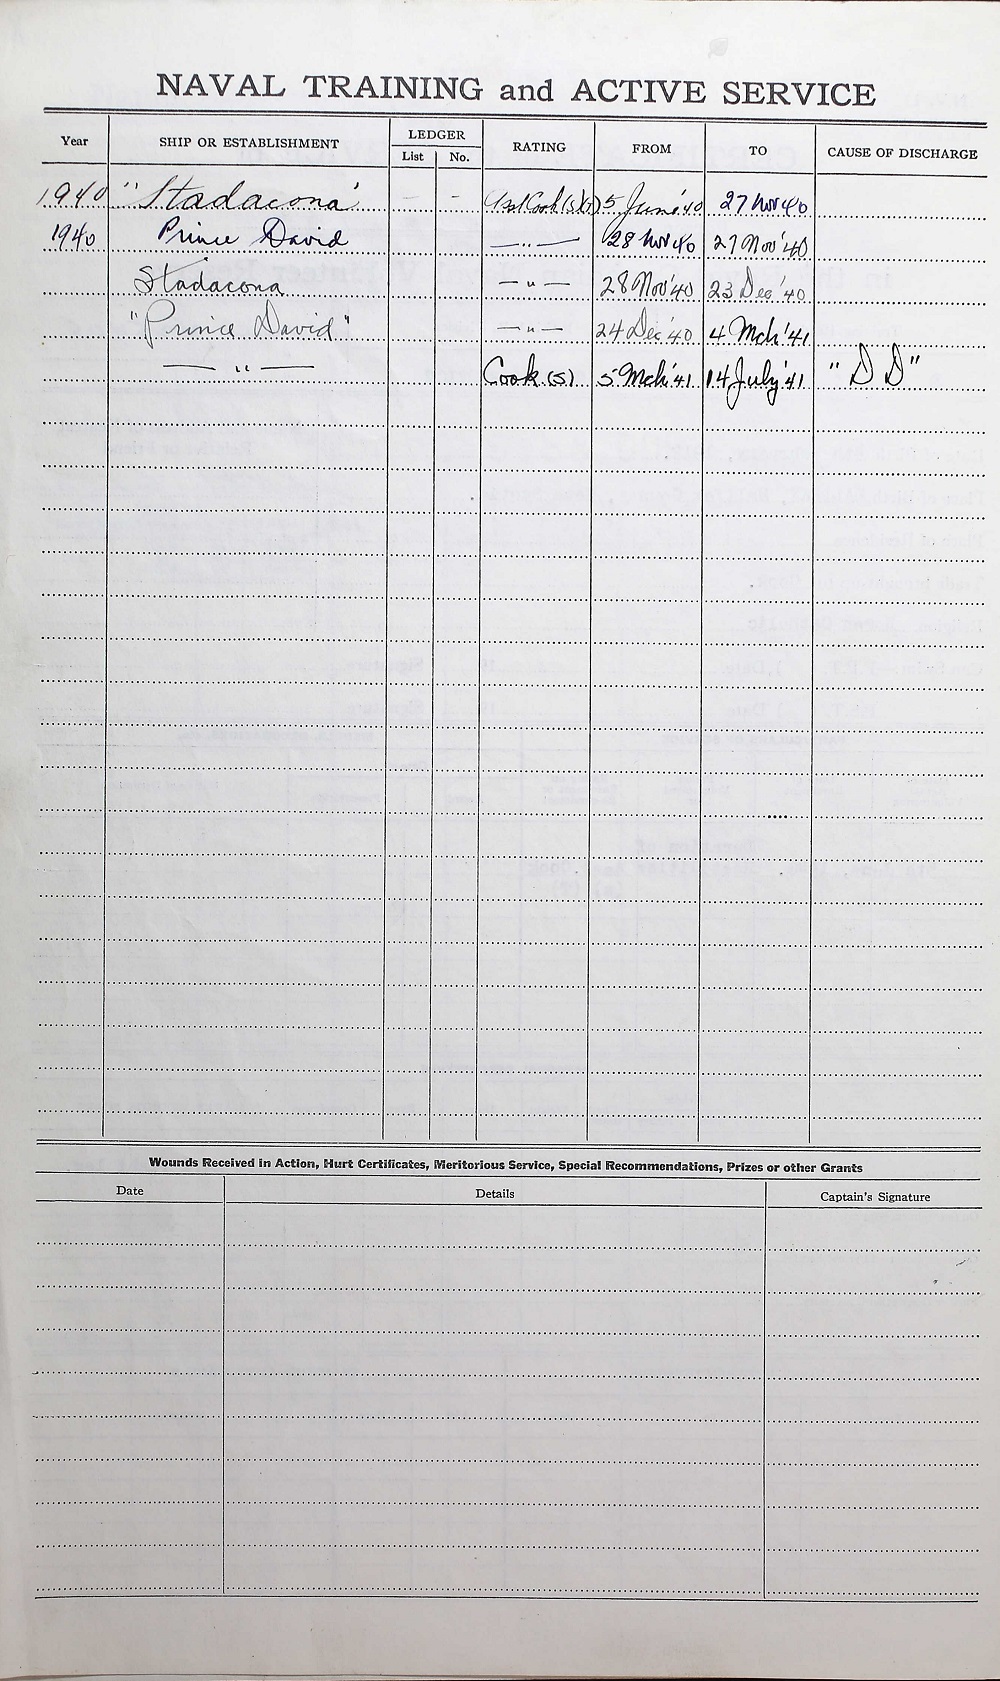 NAVAL TRAINING and ACTIVE SERVICE
Year SHIP OR ESTABLISHMENT LEDGER List No. RATING FROM TO CAUSE OF DISCHARGE
1940 "Stadacona" - - Asst Cook (S) 5 June '40 27 Nov 40
1940 Prince David —"— 28 Nov 40 27 Nov '40
Stadacona —"— 28 Nov '40 23 Dec '40
"Prince David" —"— 24 Dec '40 4 Mch '41
—"— Cook (S) 5 Mch '41 14 July '41 "DD"
Wounds Received in Action, Hurt Certificates, Meritorious Service, Special Recommendations, Prizes or other Grants
Date Details Captain's Signature